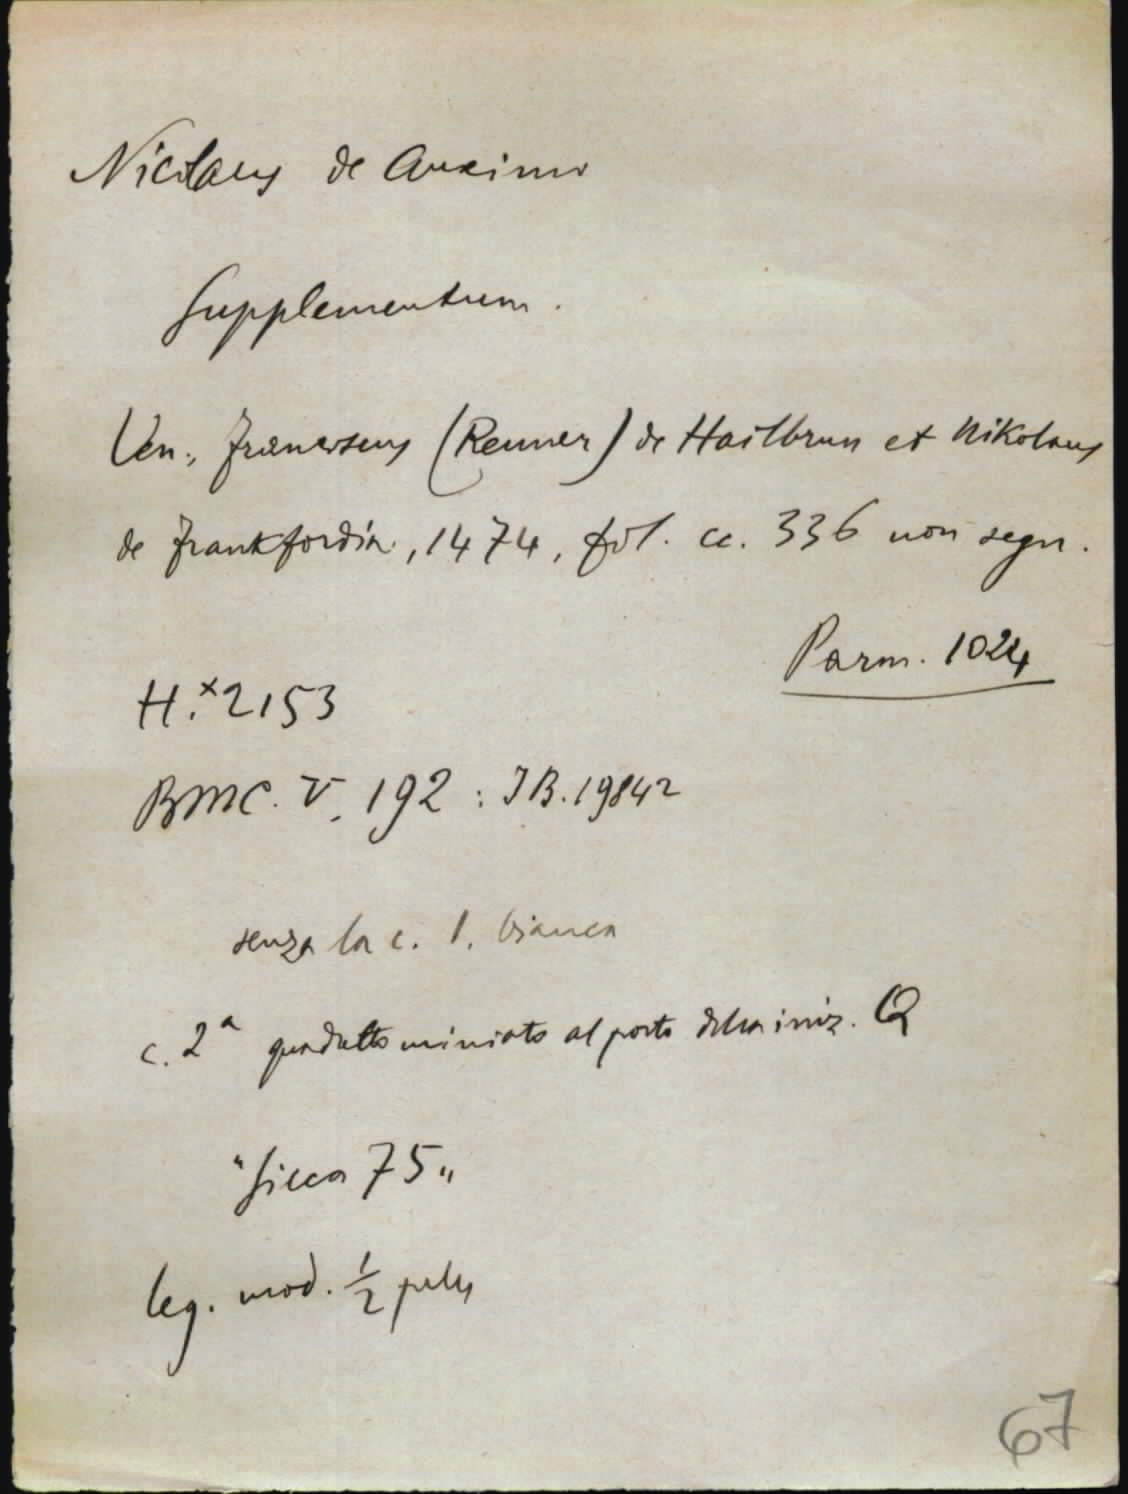 Nicolaus de Auximo
Supplementum.
Ven., Franciscus (Renner) de Hailbrun et Nikolaus
de Frankfordia, 1474, fol. cc. 336 non segn.
Parm. 1024
H.ˣ2153
BMC. V. 192 : IB. 19842
senza la c. 1. bianca
c. 2ª quadretto miniato al posto della iniz. Q
"Sicca 75"
leg. mod. ½ pelle
67